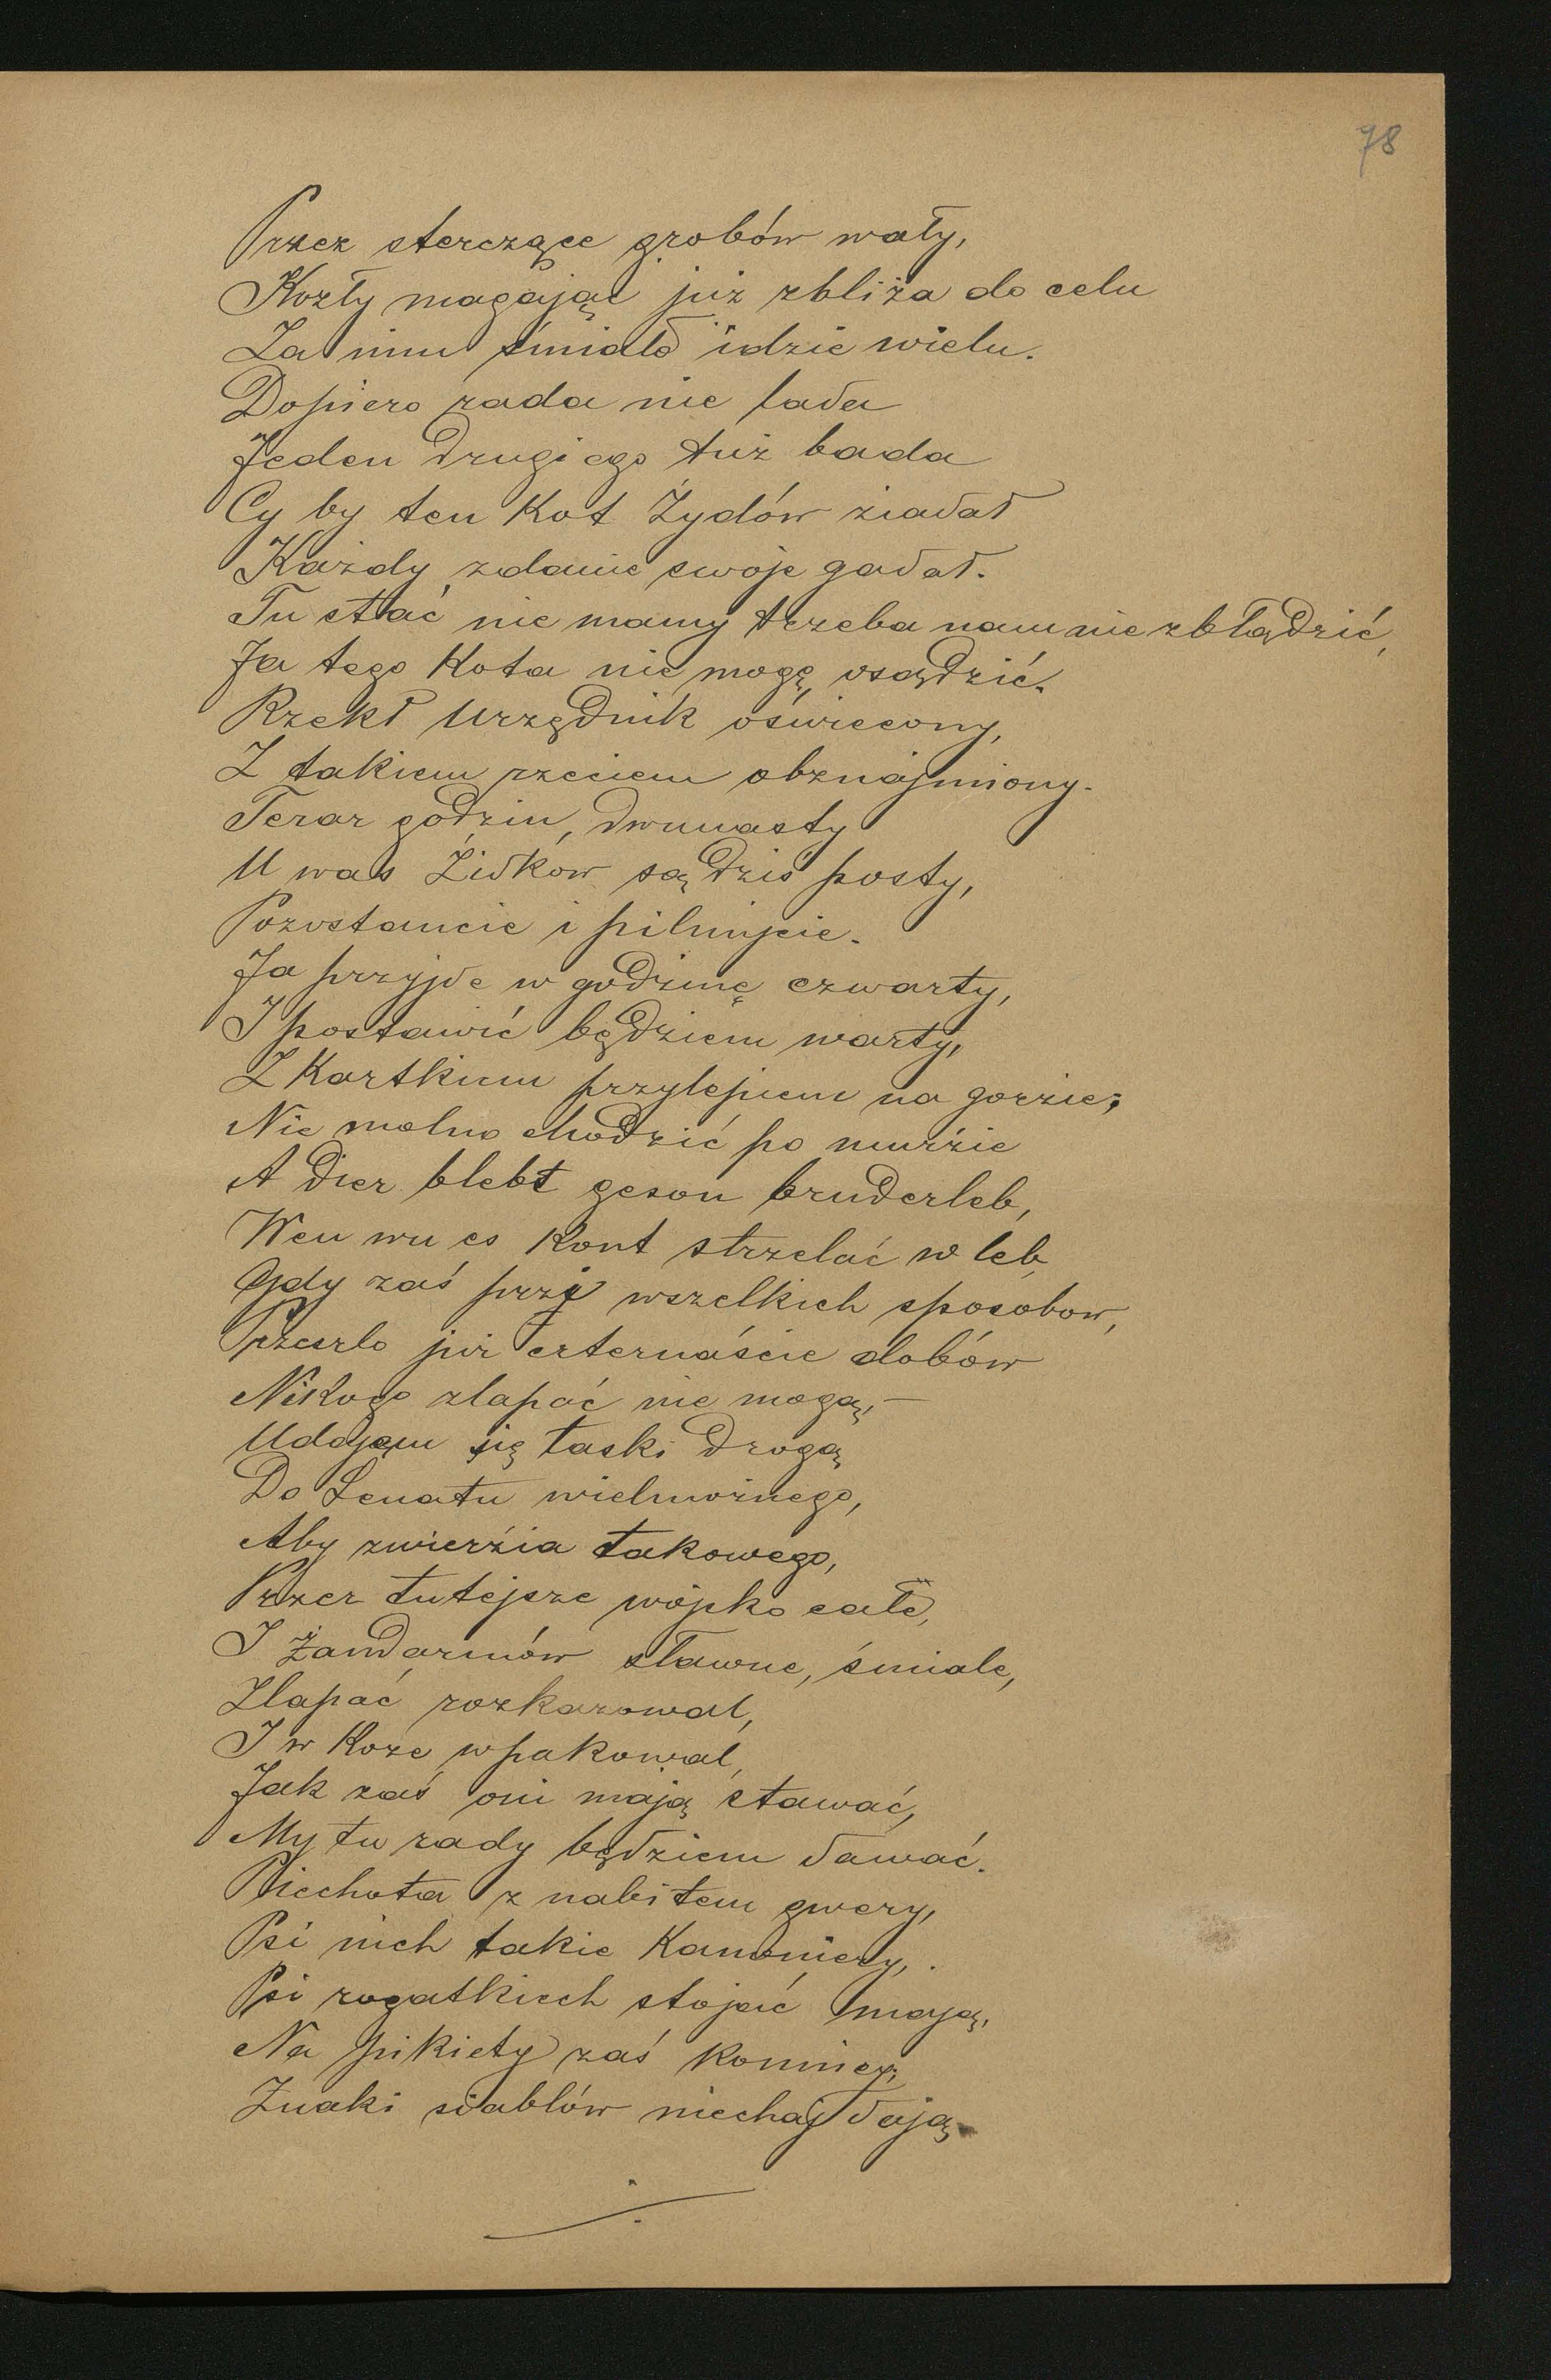 78
Przez sterczące grobów wały,
Kozły magając już zbliża do celu
Za nim śmiało idzie wielu.
Dopiero rada nie lada
Jeden drugiego tuż bada
Cy by ten Kot Żydów ziadał
Każdy zdanie swoje gadał.
Tu stać nie mamy trzeba nam nie zbłądzić,
Ja tego Kota nie mogę osądzić.
Rzekł Urzędnik oświecony,
Z takiem rzeciem obznajmiony.
Teraz godzin, dwunasty
U was Żidków są dziś posty,
Pozostancie i pilnujcie.
Ja przyjde w godzinę czwarty,
I postawić będziem warty,
Z Kartkium przylepiem na gorzie;
Nie molno chodzić po murzie
A dier blebt geson bruderleb,
Wen wu es Kont strzelać w leb,
Gdy zaś przy wszelkich sposobow,
Przeszlo już czternaście dobów
Nikogo zlapać nie mogą, —
Uddajem się łaski drogą
Do Senatu wielmożnego,
Aby zwierzia takowego,
Przez tutejsze wojsko całe,
I Żandarmów sławne, śmiale,
Zlapać rozkazowal,
I w Koze wpakowal,
Jak zaś oni mają stawać,
My tu rady będziem dawać.
Piechota z nabitem gwery,
Psi nich takie Kanoniery,.
Psi rogatkiech stojać mają,
Na pikiety zaś Konnicy,
Znaki siablów niechaj dają